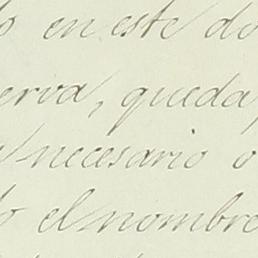 en este do
erva, queda,
necesario o
el nombre